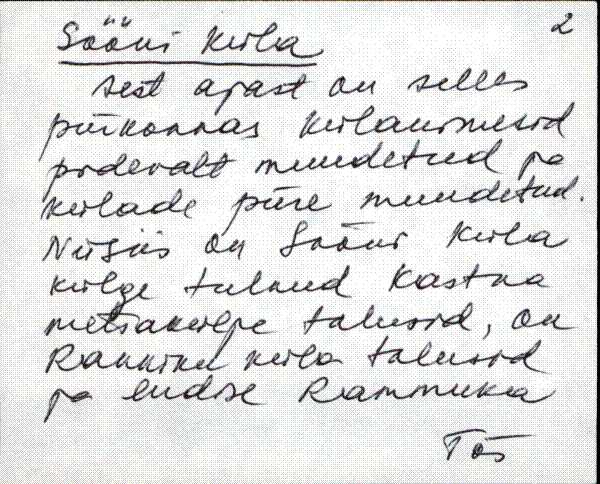 2
Sööni küla
sest ajast on selles
piirkonnas külanimesid
pidevalt muudetud ja
külade piire muudetud.
Niisiis on Sööni küla
külge tulnud Kastna
metsakülje talusid, on
Ranniku küla talusid
ja endise Rammuka